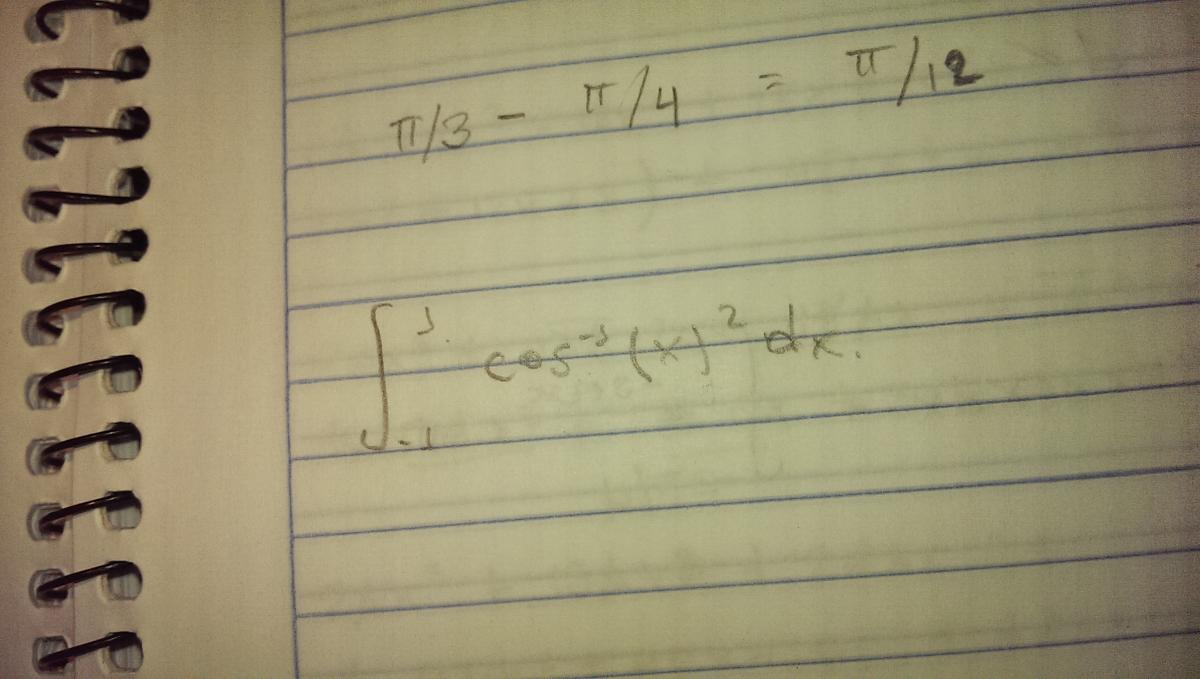 π/3 - π/4 = π/12
∫₋₁¹ cos⁻¹(x)² dx.